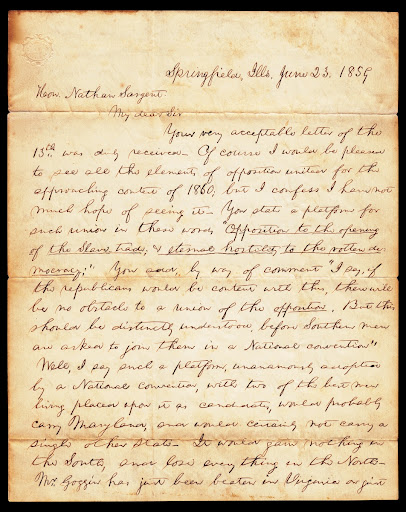 Springfield, Ills, June 23. 1859
Hon. Nathan Sargent.
My dear Sir
Your very acceptable letter of the
13th was duly received. Of course I would be pleased
to see all the elements of opposition united for the
approaching contest of 1860; but I confess I have not
much hope of seeing it. You state a platform for
such union in these words "Opposition to the opening
of the Slave-trade; & eternal hostility to the rotten de-
mocracy." You add, by way of comment "I say, if
the republicans would be content with this, there will
be no obstacle to a union of the opposition. But this
should be distinctly understood, before Southern men
are asked to join them in a National convention"
Well, I say such a platform, unanimously adopted
by a National convention, with two of the best men
living placed upon it as candidates, would probably
carry Maryland, and would certainly not carry a
single other state. It would gain nothing in
the South, and lose every thing in the North.
Mr. Goggin has just been beaten in Virginia on just